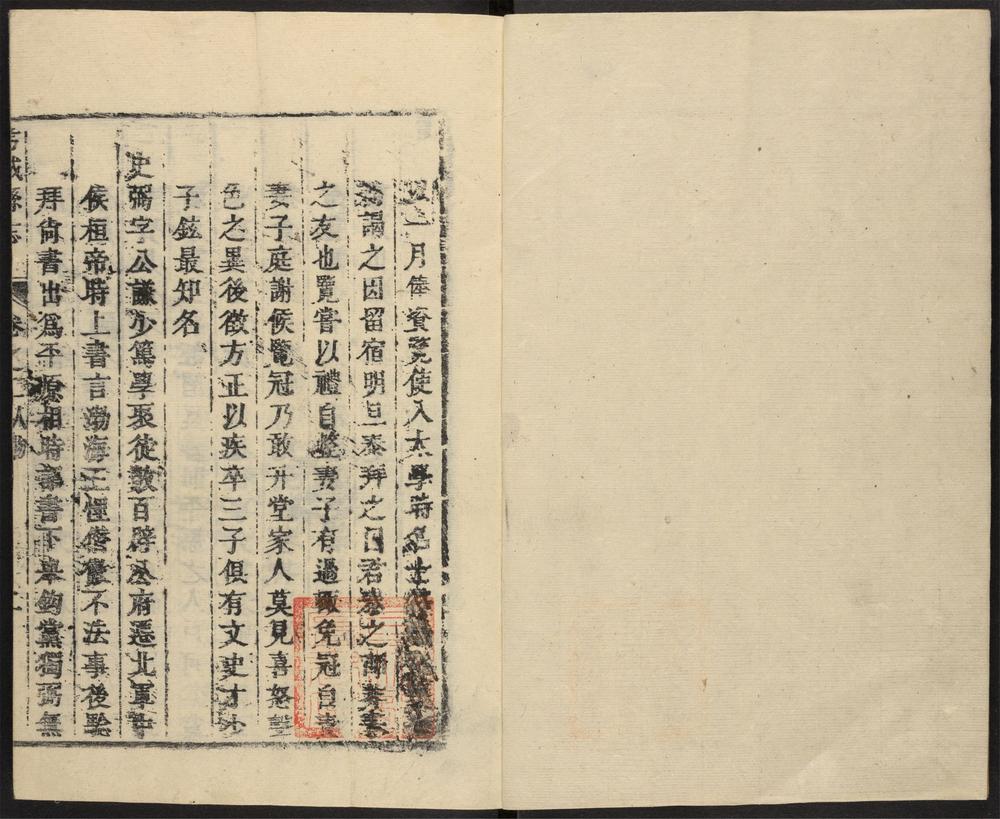 一月俸資覽使入太學
謁之因留宿明旦泰拜之曰君泰之師非泰
之友也覽嘗以禮自整妻子有過輒免冠自責
妻子庭謝候覽冠乃敢升堂家人莫見喜怒聲
色之異後徵方正以疾卒三子俱有文史才少
子鉉最知名
史弼字公謙少篤學聚徒數百辟公府遷北軍中
侯桓帝時上書言渤海王悝僭傲不法事後點
拜尚書出爲平原相時詔書下舉鉤黨獨弼無
考城縣志 卷之 人物